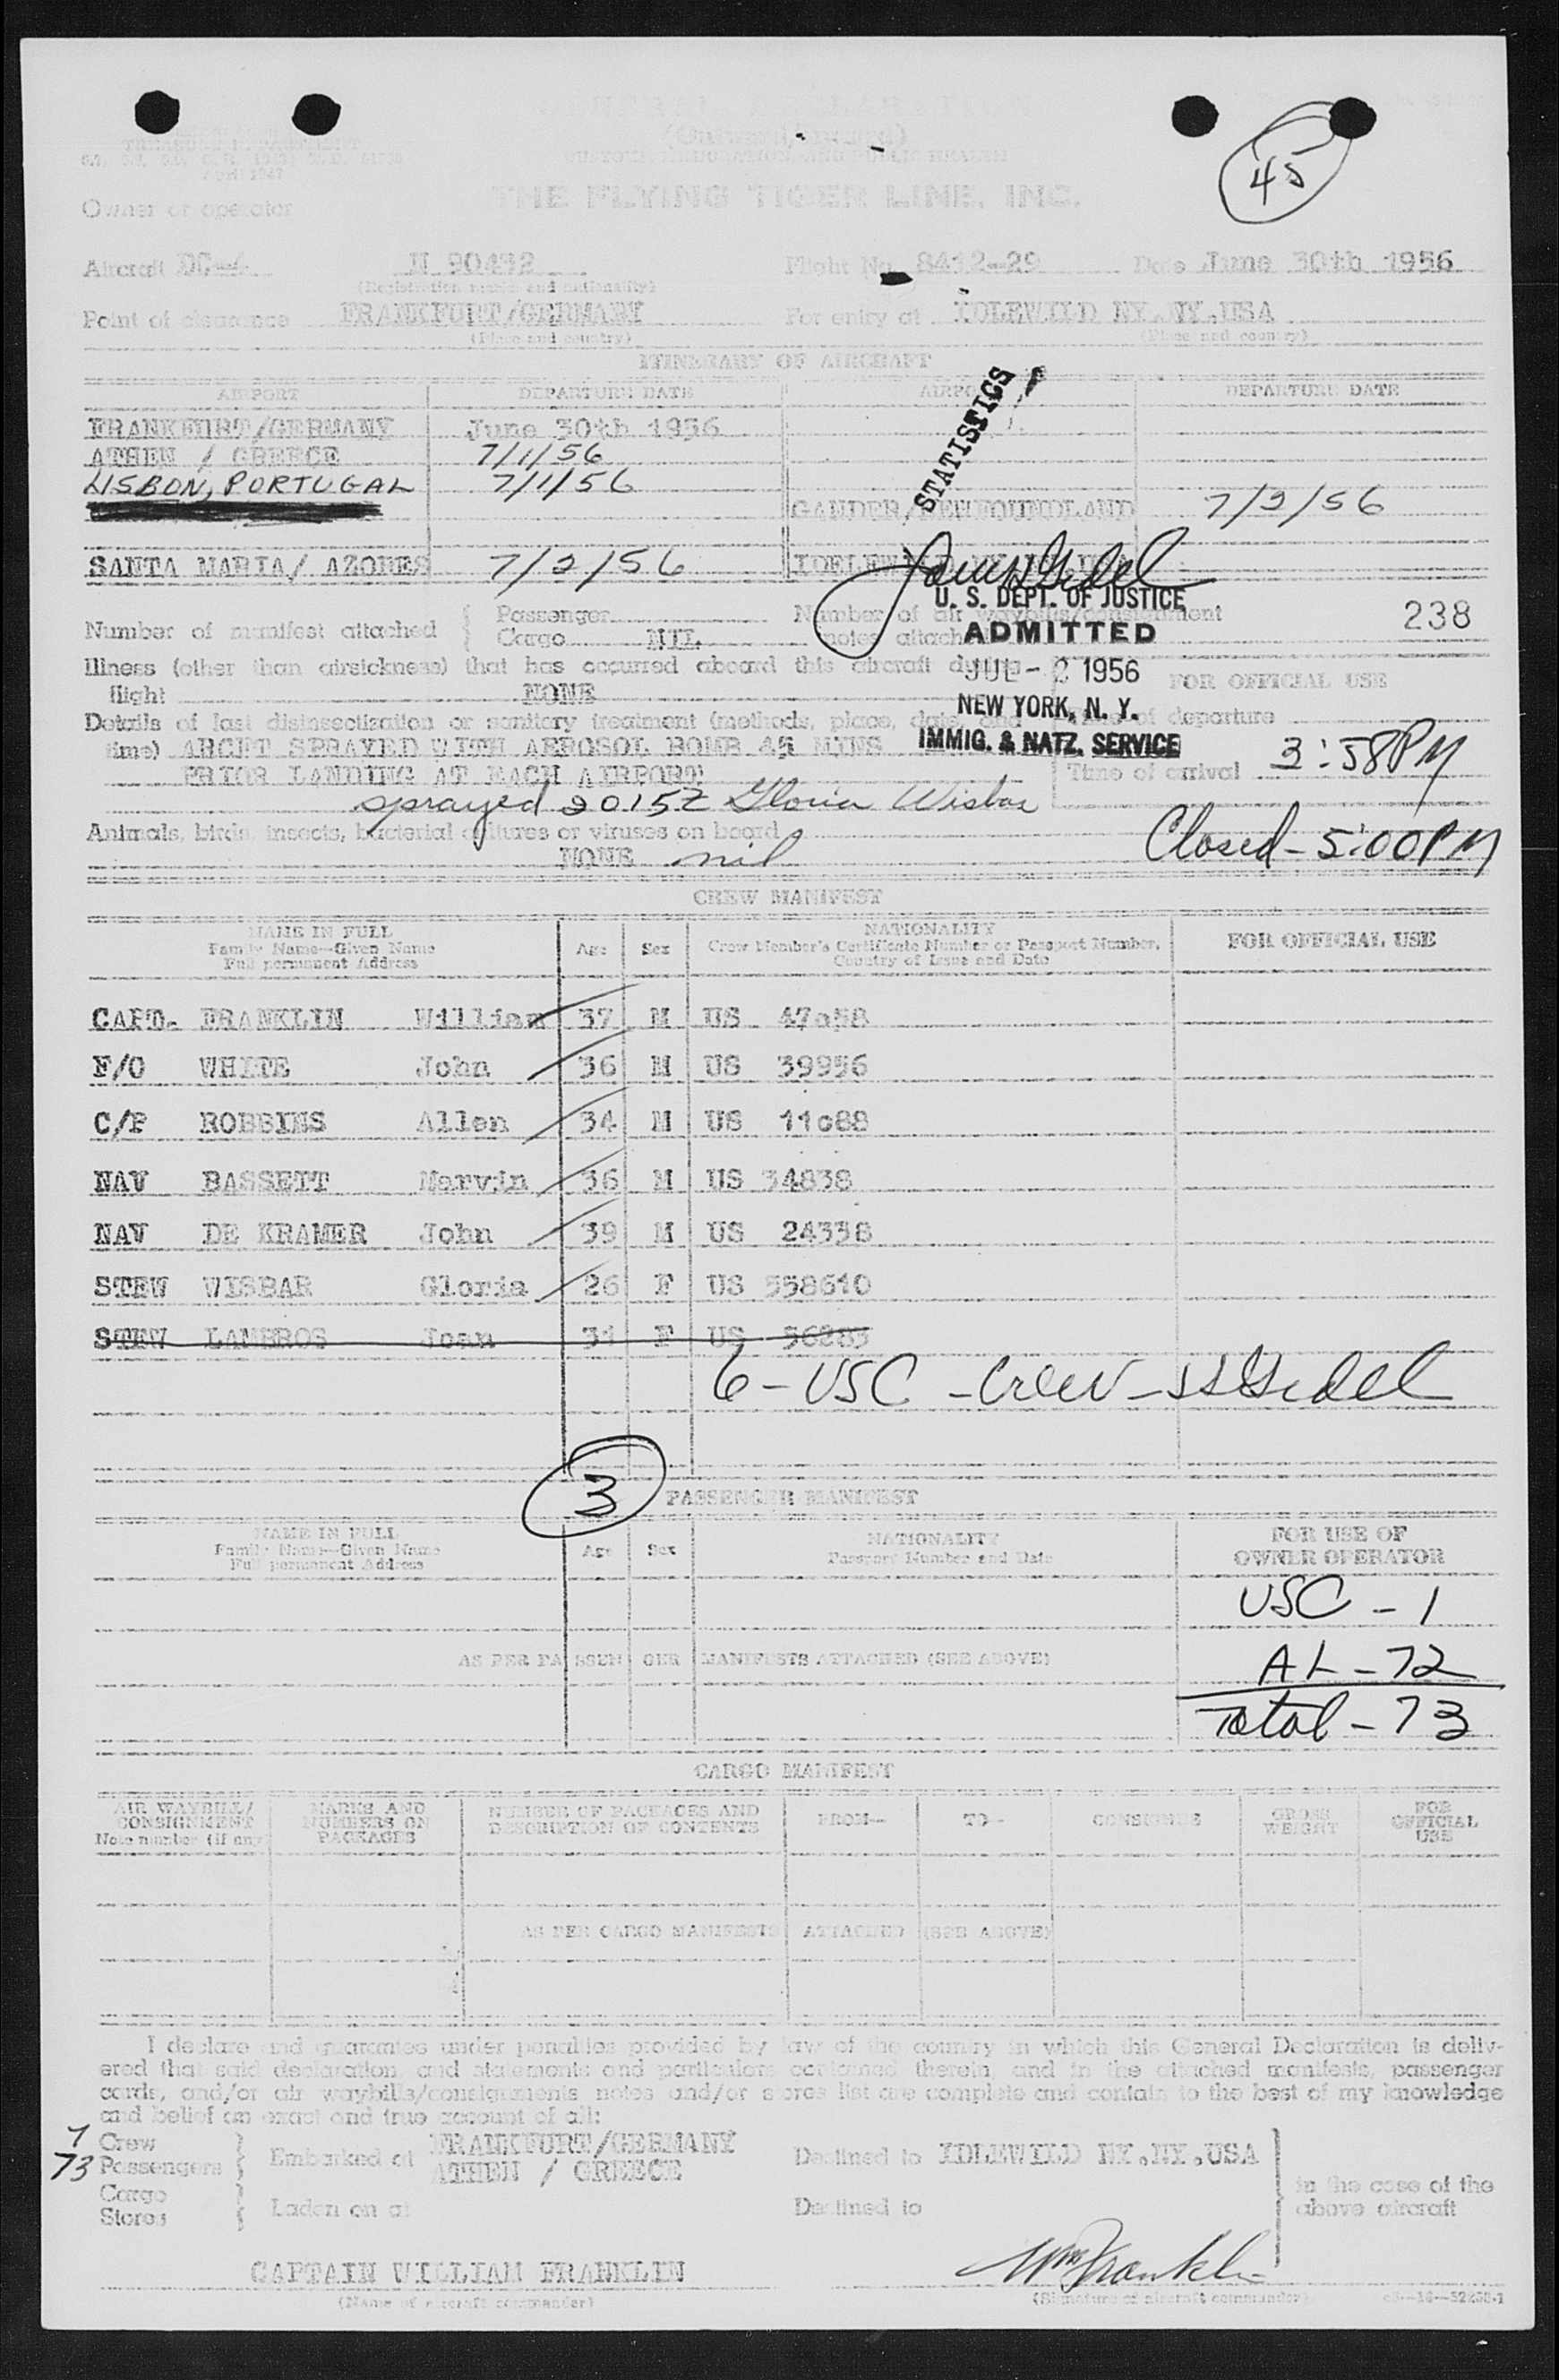 45
TREASURY DEPARTMENT
APRIL 1947
(Outward/Inward)
CUSTOMS, IMMIGRATION, AND PUBLIC HEALTH
Owner or operator THE FLYING TIGER LINE, INC.
Aircraft DC-4 N 90432 Flight No. 8412-29 Date June 30th 1956
(Registration marks and nationality)
Point of clearance FRANKFURT/GERMANY For entry at IDLEWILD NY.NY.USA
(Place and country) (Place and country)
ITINERARY OF AIRCRAFT
AIRPORT DEPARTURE DATE AIRPORT DEPARTURE DATE
STATISTICS
FRANKFURT/GERMANY June 30th 1956
ATHEN / GREECE 7/1/56
LISBON, PORTUGAL 7/1/56
GANDER/NEWFOUNDLAND 7/2/56
SANTA MARIA/ AZORES 7/2/56
U. S. DEPT. OF JUSTICE
ADMITTED
JUL - 2 1956
NEW YORK, N. Y.
IMMIG. & NATZ. SERVICE
Number of manifest attached { Passenger Number of air waybills/consignment 238
Cargo NIL notes attached
Illness (other than airsickness) that has occurred aboard this aircraft during FOR OFFICIAL USE
flight NONE
Details of last disinsectization or sanitary treatment (methods, place, date, and Time of departure
time) ARCFT SPRAYED WITH AEROSOL BOMB 45 MINS Time of arrival 3:58PM
PRIOR LANDING AT EACH AIRPORT
sprayed 2015Z Gloria Wisbar
Animals, birds, insects, bacterial cultures or viruses on board Closed - 5:00PM
NONE nil
CREW MANIFEST
NAME IN FULL Age Sex NATIONALITY FOR OFFICIAL USE
Family Name—Given Name Crew Member's Certificate Number or Passport Number,
Full permanent Address Country of Issue and Date
CAPT. FRANKLIN William 37 M US 47a58
F/O WHITE John 36 M US 39956
C/P ROBBINS Allen 34 M US 11c88
NAV BASSETT Marvin 36 M US 34838
NAV DE KRAMER John 39 M US 24338
STEW WISBAR Gloria 26 F US 558610
STEW LAMBROS Joan 31 F US 56283
6 - USC - Crew - JSGedel
3
PASSENGER MANIFEST
NAME IN FULL Age Sex NATIONALITY FOR USE OF
Family Name—Given Name Passport Number and Date OWNER OPERATOR
Full permanent Address
USC - 1
AS PER PASSENGER MANIFESTS ATTACHED (SEE ABOVE) AL - 72
Total - 73
CARGO MANIFEST
AIR WAYBILL/ MARKS AND NUMBER OF PACKAGES AND FROM— TO— CONSIGNEE GROSS FOR
CONSIGNMENT NUMBERS ON DESCRIPTION OF CONTENTS WEIGHT OFFICIAL
Note number (if any) PACKAGES USE
AS PER CARGO MANIFESTS ATTACHED (SEE ABOVE)
I declare and guarantee under penalties provided by law of the country in which this General Declaration is deliv-
ered that said declaration and statements and particulars contained therein, and in the attached manifests, passenger
cards, and/or air waybills/consignments notes and/or stores list are complete and contain to the best of my knowledge
and belief an exact and true account of all:
7 Crew } Embarked at FRANKFURT/GERMANY Destined to IDLEWILD NY.NY.USA
73 Passengers ATHEN / GREECE in the case of the
Cargo } Laden on at Destined to above aircraft
Stores
CAPTAIN WILLIAM FRANKLIN Wm Franklin
(Name of aircraft commander) (Signature of aircraft commander)